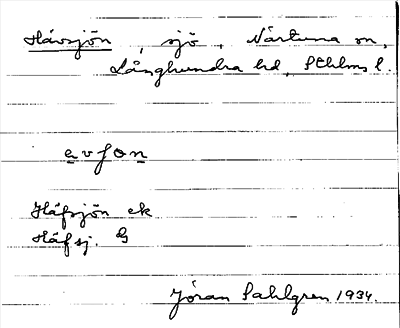 Håvsjön, sjö, Närtuna sn,
Långhundra hd, Sthlms l.
avʃon
Häfsjön ek
Häfsj. G
Jöran Sahlgren 1934.